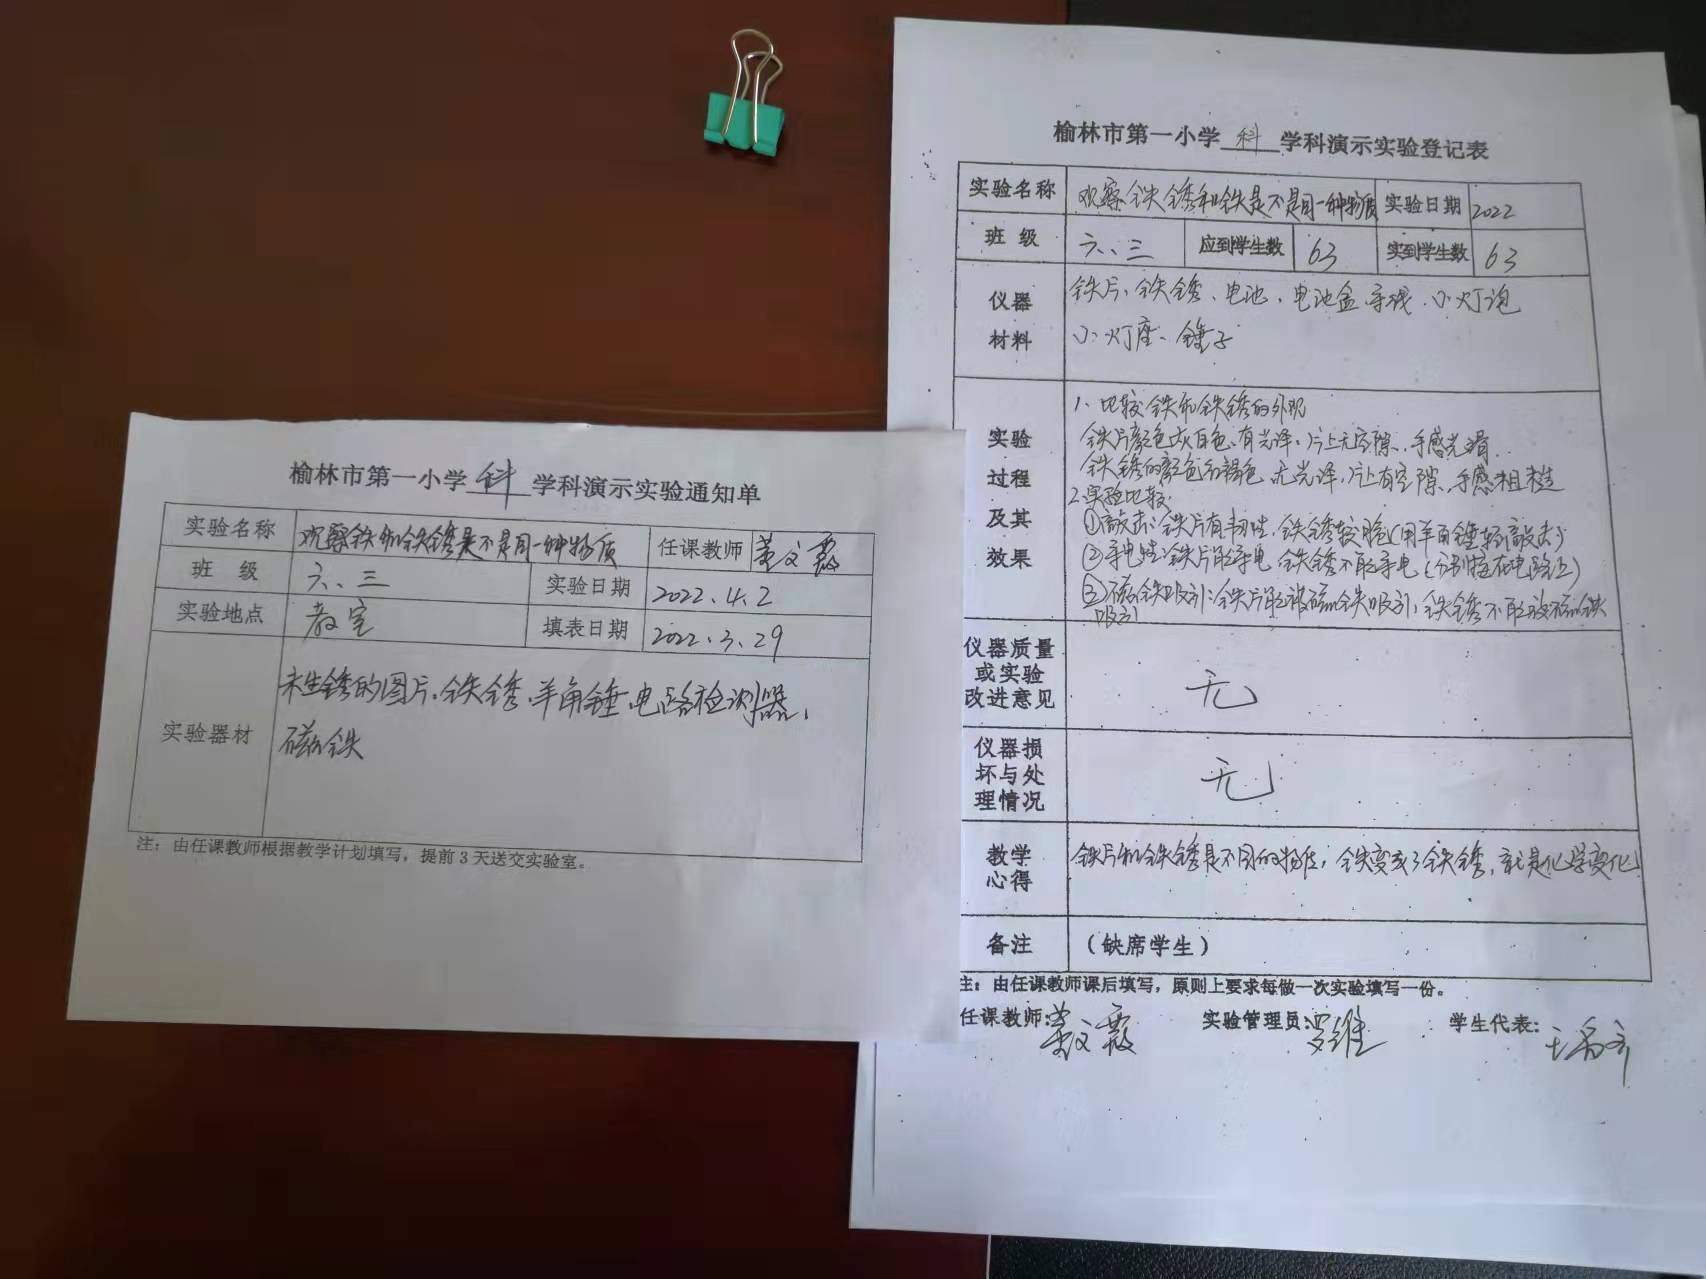 榆林市第一小学 科 学科演示实验通知单
实验名称 观察铁和铁锈是不是同一种物质 任课教师 董文霞
班 级 六、三 实验日期 2022.4.2
实验地点 教室 填表日期 2022.3.29
实验器材 未生锈的图片、铁锈、羊角锤、电路检测器、
磁铁
注：由任课教师根据教学计划填写，提前3天送交实验室。
榆林市第一小学 科 学科演示实验登记表
实验名称 观察铁锈和铁是不是同一种物质 实验日期 2022
班 级 六、三 应到学生数 63 实到学生数 63
仪器 铁片、铁锈、电池、电池盒、导线、小灯泡
材料 小灯座、锤子
实验 过程 及其 效果
1、比较铁和铁锈的外观
铁片颜色灰白色、有光泽，片上无空隙、手感光滑
铁锈的颜色红褐色，无光泽，片上有空隙、手感粗糙
2.实验比较
①敲击：铁片有韧性，铁锈较脆（用羊角锤轻敲击）
②导电性：铁片能导电 铁锈不能导电（分别接在电路上）
③磁铁吸引：铁片能被磁铁吸引，铁锈不能被磁铁
吸引
仪器质量
或实验
改进意见
无
仪器损
坏与处
理情况
无
教学
心得
铁片和铁锈是不同的物质，铁变成了铁锈，就是化学变化
备注 （缺席学生）
注：由任课教师课后填写，原则上要求每做一次实验填写一份。
任课教师：董文霞 实验管理员：罗维 学生代表：